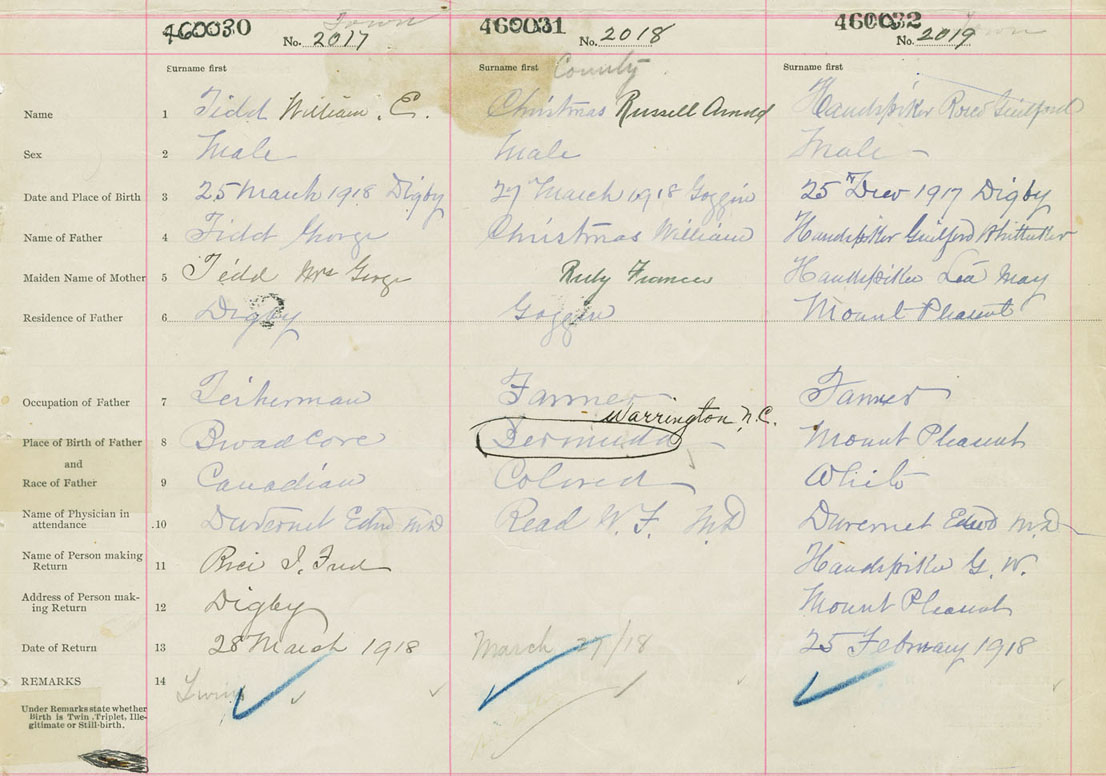 460030 Town 460031 460032 Town
No. 2017 No. 2018 No. 2019
Surname first Surname first County Surname first
Name 1 Tidd William . C. Christmas Russell Arnold Handspiker Guilford
Sex 2 Male Male Male –
Date and Place of Birth 3 25 March 1918 Digby 27 March 1918 Goggin 25 1917 Digby
Name of Father 4 Tidd George Christmas William Handspiker Guilford Whittaker
Maiden Name of Mother 5 Tidd Mrs George Ruby Frances Handspiker May
Residence of Father 6 Digby Goggin Mount Pleasant
Occupation of Father 7 Farmer Farmer
Warrington, N.C.
Place of Birth of Father 8 Broad Cove Bermuda Mount Pleasant
and
Race of Father 9 Canadian Colored White
Name of Physician in
attendance .10 Duvernet Edwd M.D Read W. F. M.D Duvernet Edwd M.D
Name of Person making
Return 11 Fred Handspiker G. W.
Address of Person mak-
ing Return 12 Digby Mount Pleasant
Date of Return 13 28 March 1918 March 27/18 25 February 1918
REMARKS 14 Twins
Under Remarks state whether
Birth is Twin, Triplet, Ille-
gitimate or Still-birth.